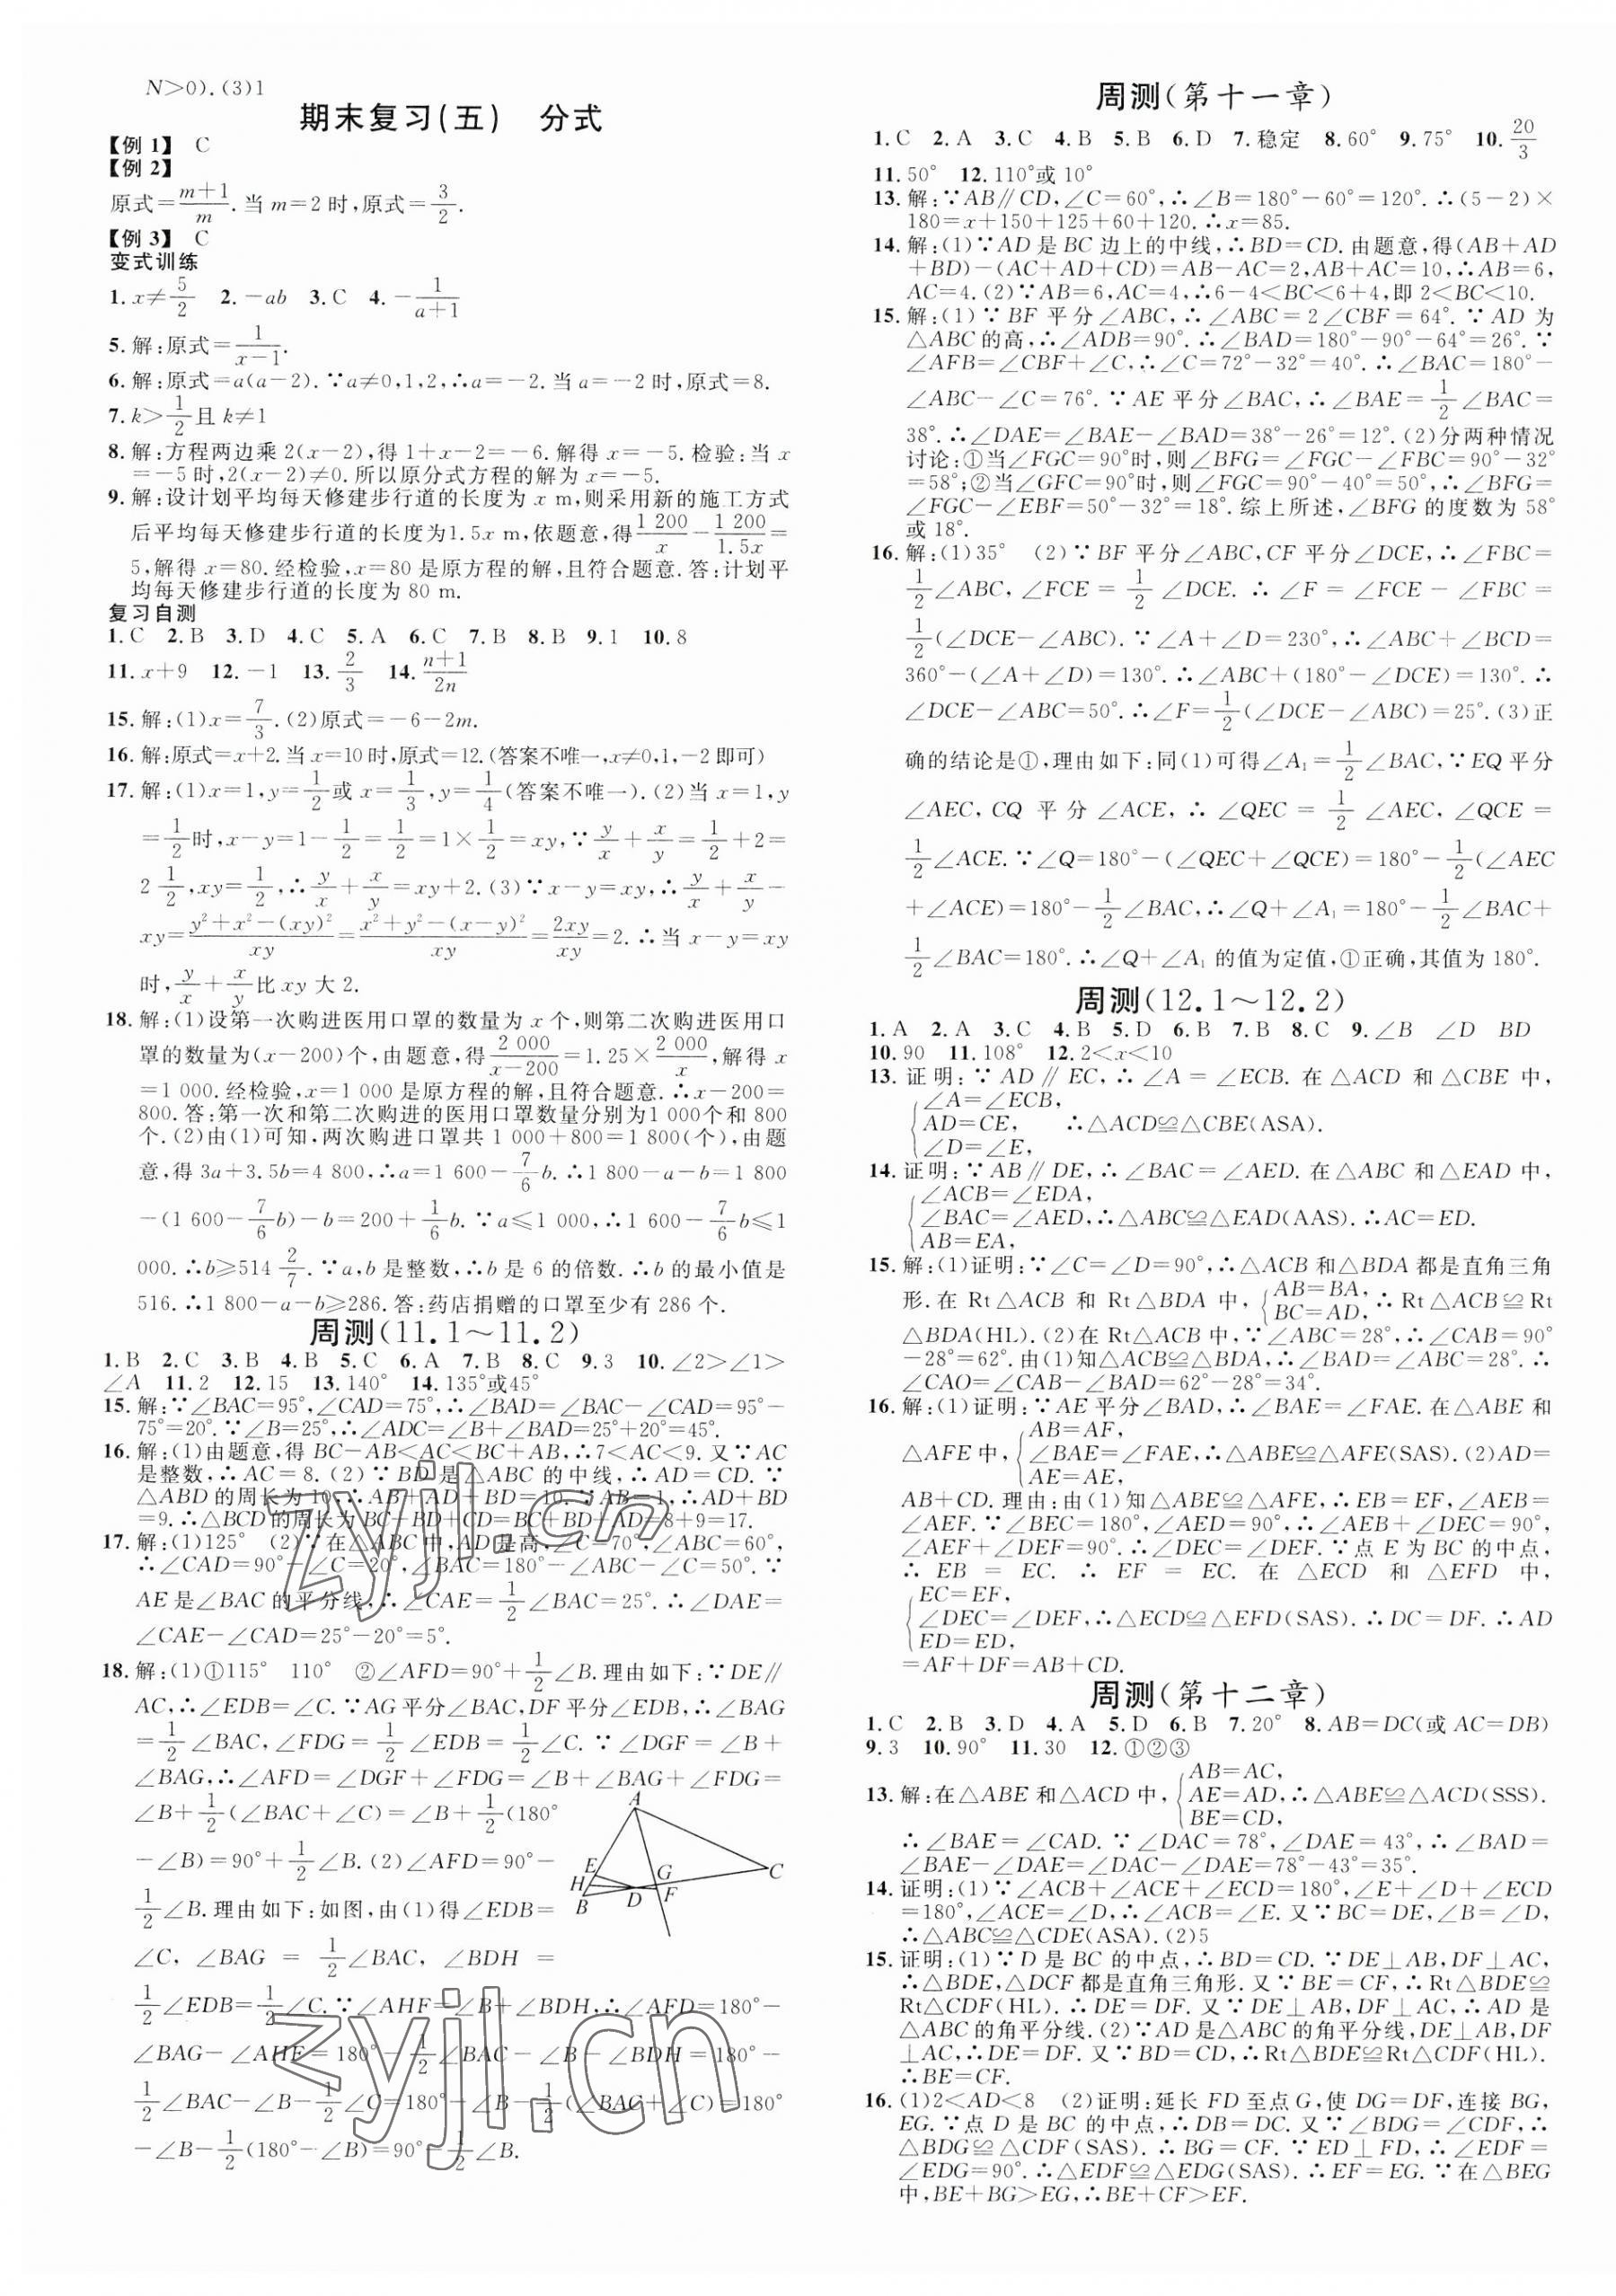 N>0).(3)1
期末复习(五)　分式
【例1】　C
【例2】
原式=\frac{m+1}{m}.当m=2时,原式=\frac{3}{2}.
【例3】　C
变式训练
1.x≠\frac{5}{2}　2.-ab　3.C　4.-\frac{1}{a+1}
5.解:原式=\frac{1}{x-1}.
6.解:原式=a(a-2).∵a≠0,1,2,∴a=-2.当a=-2时,原式=8.
7.k>\frac{1}{2}且k≠1
8.解:方程两边乘2(x-2),得1+x-2=-6.解得x=-5.检验:当x
=-5时,2(x-2)≠0.所以原分式方程的解为x=-5.
9.解:设计划平均每天修建步行道的长度为x m,则采用新的施工方式
后平均每天修建步行道的长度为1.5x m,依题意,得\frac{1 200}{x}-\frac{1 200}{1.5x}=
5,解得x=80.经检验,x=80是原方程的解,且符合题意.答:计划平
均每天修建步行道的长度为80 m.
复习自测
1.C　2.B　3.D　4.C　5.A　6.C　7.B　8.B　9.1　10.8
11.x+9　12.-1　13.\frac{2}{3}　14.\frac{n+1}{2n}
15.解:(1)x=\frac{7}{3}.(2)原式=-6-2m.
16.解:原式=x+2.当x=10时,原式=12.(答案不唯一,x≠0,1,-2即可)
17.解:(1)x=1,y=\frac{1}{2}或x=\frac{1}{3},y=\frac{1}{4}(答案不唯一).(2)当x=1,y
=\frac{1}{2}时,x-y=1-\frac{1}{2}=\frac{1}{2}=1×\frac{1}{2}=xy,∵\frac{y}{x}+\frac{x}{y}=\frac{1}{2}+2=
2\frac{1}{2},xy=\frac{1}{2},∴\frac{y}{x}+\frac{x}{y}=xy+2.(3)∵x-y=xy,∴\frac{y}{x}+\frac{x}{y}-
xy=\frac{y²+x²-(xy)²}{xy}=\frac{x²+y²-(x-y)²}{xy}=\frac{2xy}{xy}=2.∴当x-y=xy
时,\frac{y}{x}+\frac{x}{y}比xy大2.
18.解:(1)设第一次购进医用口罩的数量为x个,则第二次购进医用口
罩的数量为(x-200)个,由题意,得\frac{2 000}{x-200}=1.25×\frac{2 000}{x},解得x
=1 000.经检验,x=1 000是原方程的解,且符合题意.∴x-200=
800.答:第一次和第二次购进的医用口罩数量分别为1 000个和800
个.(2)由(1)可知,两次购进口罩共1 000+800=1 800(个),由题
意,得3a+3.5b=4 800,∴a=1 600-\frac{7}{6}b.∴1 800-a-b=1 800
-(1 600-\frac{7}{6}b)-b=200+\frac{1}{6}b.∵a≤1 000,∴1 600-\frac{7}{6}b≤1
000.∴b≥514\frac{2}{7}.∵a,b是整数,∴b是6的倍数.∴b的最小值是
516.∴1 800-a-b≥286.答:药店捐赠的口罩至少有286个.
周测(11.1～11.2)
1.B　2.C　3.B　4.B　5.C　6.A　7.B　8.C　9.3　10.∠2>∠1>
∠A　11.2　12.15　13.140°　14.135°或45°
15.解:∵∠BAC=95°,∠CAD=75°,∴∠BAD=∠BAC-∠CAD=95°-
75°=20°.∵∠B=25°,∴∠ADC=∠B+∠BAD=25°+20°=45°.
16.解:(1)由题意,得BC-AB<AC<BC+AB,∴7<AC<9.又∵AC
是整数,∴AC=8.(2)∵BD是△ABC的中线,∴AD=CD.∵
△ABD的周长为10,∴AB+AD+BD=10.∵AB=1,∴AD+BD
=9.∴△BCD的周长为BC+BD+CD=BC+BD+AD=8+9=17.
17.解:(1)125°　(2)∵在△ABC中,AD是高,∠C=70°,∠ABC=60°,
∴∠CAD=90°-∠C=20°,∠BAC=180°-∠ABC-∠C=50°.∵
AE是∠BAC的平分线,∴∠CAE=\frac{1}{2}∠BAC=25°.∴∠DAE=
∠CAE-∠CAD=25°-20°=5°.
18.解:(1)①115°　110°　②∠AFD=90°+\frac{1}{2}∠B.理由如下:∵DE∥
AC,∴∠EDB=∠C.∵AG平分∠BAC,DF平分∠EDB,∴∠BAG
=\frac{1}{2}∠BAC,∠FDG=\frac{1}{2}∠EDB=\frac{1}{2}∠C.∵∠DGF=∠B+
∠BAG,∴∠AFD=∠DGF+∠FDG=∠B+∠BAG+∠FDG=
∠B+\frac{1}{2}(∠BAC+∠C)=∠B+\frac{1}{2}(180°
-∠B)=90°+\frac{1}{2}∠B.(2)∠AFD=90°-
\frac{1}{2}∠B.理由如下:如图,由(1)得∠EDB=
∠C,∠BAG=\frac{1}{2}∠BAC,∠BDH=
\frac{1}{2}∠EDB=\frac{1}{2}∠C.∵∠AHF=∠B+∠BDH,∴∠AFD=180°-
∠BAG-∠AHF=180°-\frac{1}{2}∠BAC-∠B-∠BDH=180°-
\frac{1}{2}∠BAC-∠B-\frac{1}{2}∠C=180°-∠B-\frac{1}{2}(∠BAC+∠C)=180°
-∠B-\frac{1}{2}(180°-∠B)=90°-\frac{1}{2}∠B.
A
E
H
B
D
G
F
C
zyjl.cn
zyjl.cn
周测(第十一章)
1.C　2.A　3.C　4.B　5.B　6.D　7.稳定　8.60°　9.75°　10.\frac{20}{3}
11.50°　12.110°或10°
13.解:∵AB∥CD,∠C=60°,∴∠B=180°-60°=120°.∴(5-2)×
180=x+150+125+60+120.∴x=85.
14.解:(1)∵AD是BC边上的中线,∴BD=CD.由题意,得(AB+AD
+BD)-(AC+AD+CD)=AB-AC=2,AB+AC=10,∴AB=6,
AC=4.(2)∵AB=6,AC=4,∴6-4<BC<6+4,即2<BC<10.
15.解:(1)∵BF平分∠ABC,∴∠ABC=2∠CBF=64°.∵AD为
△ABC的高,∴∠ADB=90°.∴∠BAD=180°-90°-64°=26°.∵
∠AFB=∠CBF+∠C,∴∠C=72°-32°=40°.∴∠BAC=180°-
∠ABC-∠C=76°.∵AE平分∠BAC,∴∠BAE=\frac{1}{2}∠BAC=
38°.∴∠DAE=∠BAE-∠BAD=38°-26°=12°.(2)分两种情况
讨论:①当∠FGC=90°时,则∠BFG=∠FGC-∠FBC=90°-32°
=58°;②当∠GFC=90°时,则∠FGC=90°-40°=50°,∴∠BFG=
∠FGC-∠EBF=50°-32°=18°.综上所述,∠BFG的度数为58°
或18°.
16.解:(1)35°　(2)∵BF平分∠ABC,CF平分∠DCE,∴∠FBC=
\frac{1}{2}∠ABC,∠FCE=\frac{1}{2}∠DCE.∴∠F=∠FCE-∠FBC=
\frac{1}{2}(∠DCE-∠ABC).∵∠A+∠D=230°,∴∠ABC+∠BCD=
360°-(∠A+∠D)=130°.∴∠ABC+(180°-∠DCE)=130°.∴
∠DCE-∠ABC=50°.∴∠F=\frac{1}{2}(∠DCE-∠ABC)=25°.(3)正
确的结论是①,理由如下:同(1)可得∠A₁=\frac{1}{2}∠BAC,∵EQ平分
∠AEC,CQ平分∠ACE,∴∠QEC=\frac{1}{2}∠AEC,∠QCE=
\frac{1}{2}∠ACE.∵∠Q=180°-(∠QEC+∠QCE)=180°-\frac{1}{2}(∠AEC
+∠ACE)=180°-\frac{1}{2}∠BAC,∴∠Q+∠A₁=180°-\frac{1}{2}∠BAC+
\frac{1}{2}∠BAC=180°.∴∠Q+∠A₁的值为定值,①正确,其值为180°.
周测(12.1～12.2)
1.A　2.A　3.C　4.B　5.D　6.B　7.B　8.C　9.∠B　∠D　BD
10.90　11.108°　12.2<x<10
13.证明:∵AD∥EC,∴∠A=∠ECB.在△ACD和△CBE中,
∠A=∠ECB,
AD=CE,　∴△ACD≌△CBE(ASA).
∠D=∠E,
14.证明:∵AB∥DE,∴∠BAC=∠AED.在△ABC和△EAD中,
∠ACB=∠EDA,
∠BAC=∠AED,∴△ABC≌△EAD(AAS).∴AC=ED.
AB=EA,
15.解:(1)证明:∵∠C=∠D=90°,∴△ACB和△BDA都是直角三角
形.在Rt△ACB和Rt△BDA中,{AB=BA, BC=AD,∴Rt△ACB≌Rt
△BDA(HL).(2)在Rt△ACB中,∵∠ABC=28°,∴∠CAB=90°
-28°=62°.由(1)知△ACB≌△BDA,∴∠BAD=∠ABC=28°.∴
∠CAO=∠CAB-∠BAD=62°-28°=34°.
16.解:(1)证明:∵AE平分∠BAD,∴∠BAE=∠FAE.在△ABE和
AB=AF,
△AFE中,{∠BAE=∠FAE,∴△ABE≌△AFE(SAS).(2)AD=
AE=AE,
AB+CD.理由:由(1)知△ABE≌△AFE,∴EB=EF,∠AEB=
∠AEF.∵∠BEC=180°,∠AED=90°,∴∠AEB+∠DEC=90°,
∠AEF+∠DEF=90°.∴∠DEC=∠DEF.∵点E为BC的中点,
∴EB=EC.∴EF=EC.在△ECD和△EFD中,
EC=EF,
∠DEC=∠DEF,∴△ECD≌△EFD(SAS).∴DC=DF.∴AD
ED=ED,
=AF+DF=AB+CD.
周测(第十二章)
1.C　2.B　3.D　4.A　5.D　6.B　7.20°　8.AB=DC(或AC=DB)
9.3　10.90°　11.30　12.①②③
AB=AC,
13.解:在△ABE和△ACD中,{AE=AD,∴△ABE≌△ACD(SSS).
BE=CD,
∴∠BAE=∠CAD.∵∠DAC=78°,∠DAE=43°,∴∠BAD=
∠BAE-∠DAE=∠DAC-∠DAE=78°-43°=35°.
14.证明:(1)∵∠ACB+∠ACE+∠ECD=180°,∠E+∠D+∠ECD
=180°,∠ACE=∠D,∴∠ACB=∠E.又∵BC=DE,∠B=∠D,
∴△ABC≌△CDE(ASA).(2)5
15.证明:(1)∵D是BC的中点,∴BD=CD.∵DE⊥AB,DF⊥AC,
∴△BDE,△DCF都是直角三角形.又∵BE=CF,∴Rt△BDE≌
Rt△CDF(HL).∴DE=DF.又∵DE⊥AB,DF⊥AC,∴AD是
△ABC的角平分线.(2)∵AD是△ABC的角平分线,DE⊥AB,DF
⊥AC,∴DE=DF.又∵BD=CD,∴Rt△BDE≌Rt△CDF(HL).
∴BE=CF.
16.(1)2<AD<8　(2)证明:延长FD至点G,使DG=DF,连接BG,
EG.∵点D是BC的中点,∴DB=DC.又∵∠BDG=∠CDF,∴
△BDG≌△CDF(SAS).∴BG=CF.∵ED⊥FD,∴∠EDF=
∠EDG=90°.∴△EDF≌△EDG(SAS).∴EF=EG.∵在△BEG
中,BE+BG>EG,∴BE+CF>EF.